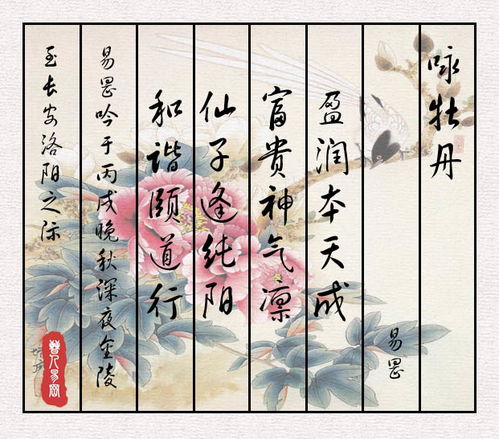 咏牡丹
易罡
盈润本天成
富貴神气凛
仙子逢纯阳
和谐颐道行
易罡吟于丙戌晚秋深夜金陵
至长安洛阳之际